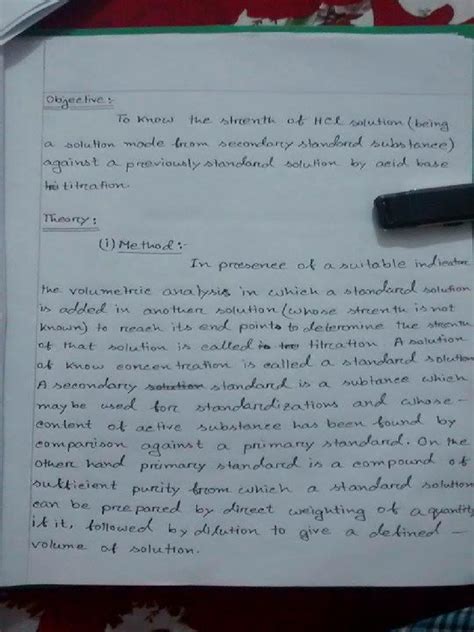 Objective :-
To know the strenth of HCl solution (being
a solution made from secondary standard substance)
against a previously standard solution by acid base
titration.
Theory :
(i) Method :-
In presence of a suitable indicator
the volumetric analysis in which a standard solution
is added in another solution (whose strenth is not
known) to reach its end point to determine the strenth
of that solution is called titration A solution
of know concentration is called a standard solution
A secondary standard is a subtance which
may be used for standardizations and whose-
content of active substance has been found by
comparison against a primary standard. On the
other hand primary standard is a compound of
sufficient purity from which a standard solution
can be prepared by direct weighting of a quantity
if it, followed by dilution to give a defined -
volume of solution.